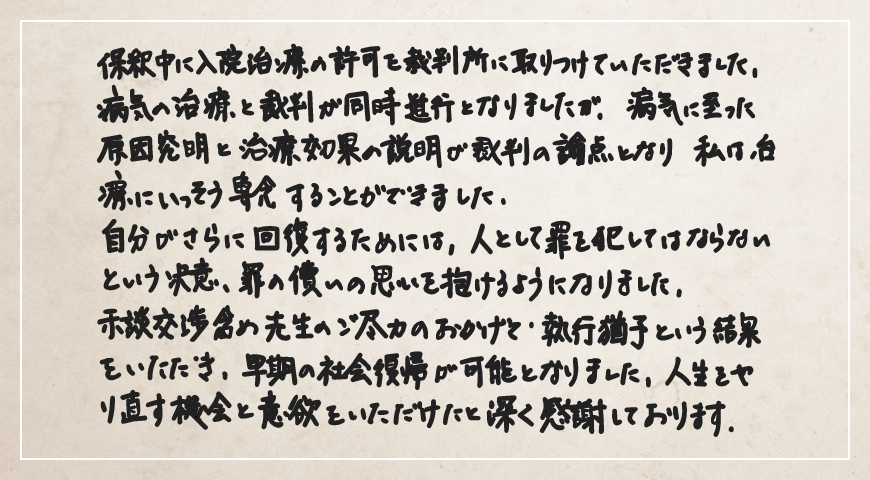 保釈中に入院治療の許可を裁判所に取りつけていただきました。
病気の治療と裁判が同時進行となりましたが、病気に至った
原因究明と治療効果の説明が裁判の論点となり 私は治
療にいっそう専念することができました。
自分がさらに回復するためには、人として罪を犯してはならない
という決意、罪の償いの思いを抱けるようになりました。
示談交渉含め先生のご尽力のおかげで執行猶予という結果
をいただき、早期の社会復帰が可能となりました。人生をや
り直す機会と意欲をいただけたと深く感謝しております。